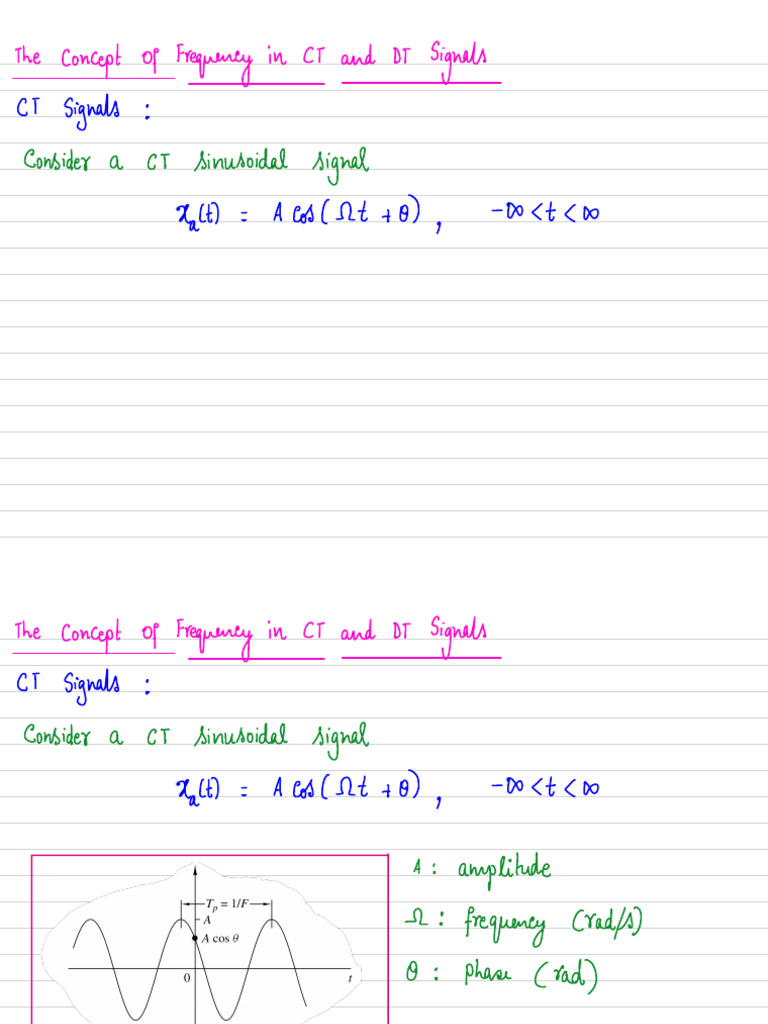 The Concept of Frequency in CT and DT Signals
CT Signals :
Consider a CT sinusoidal signal
xₐ(t) = A cos(Ωt + θ) , -∞ < t < ∞
The Concept of Frequency in CT and DT Signals
CT Signals :
Consider a CT sinusoidal signal
xₐ(t) = A cos(Ωt + θ) , -∞ < t < ∞
A : amplitude
Tₚ = 1/F
A
Ω : frequency (rad/s)
A cos θ
θ : phase (rad)
0
t